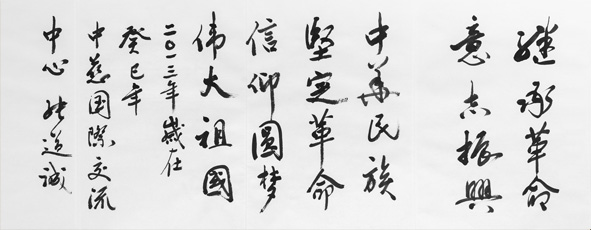 继承革命
意志振興
中华民族
堅定革命
信仰圆梦
伟大祖國
二〇一三年歲在
癸巳年
中慈国際交流
中心 赠